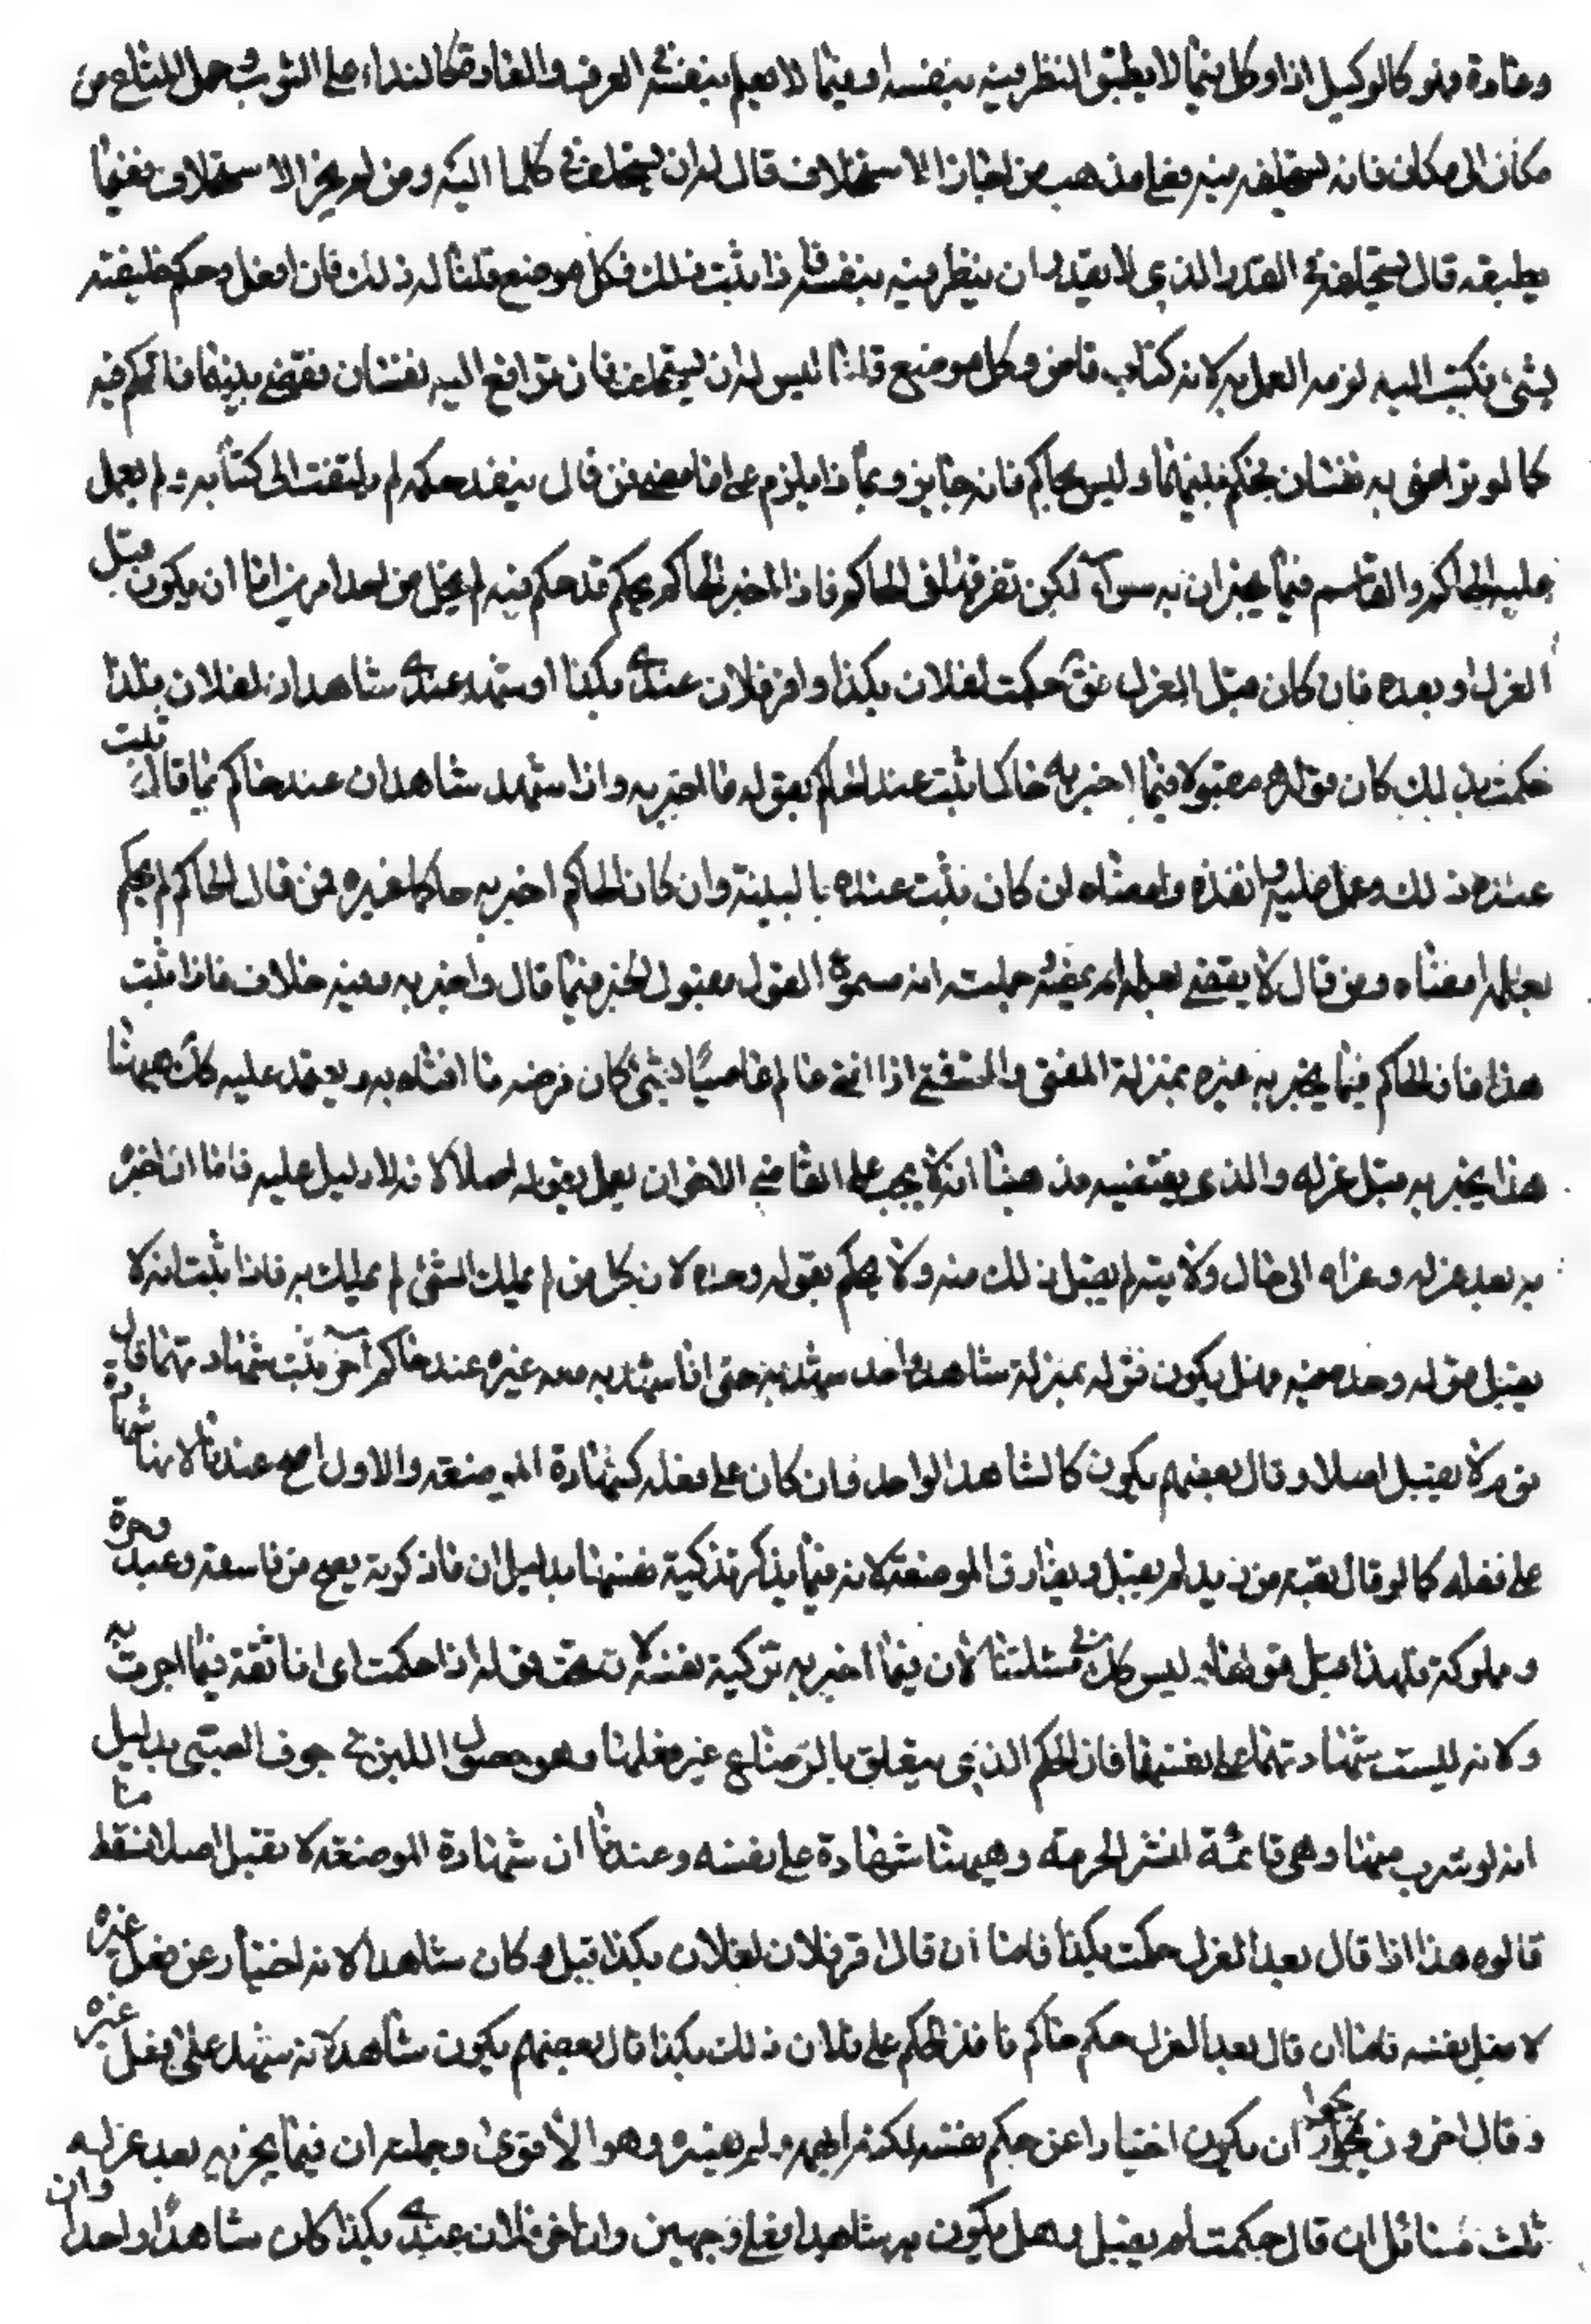 وعادة وهو كالوكيل اذا وكل فيما لا يطيق النظر فيه بنفسه او فيما لا يعلم بنفسه العرف والعادة كالنداء على الثوب وحمل المتاع من
مكان الى مكان فانه يستخلف فيه فعلى مذهب من اجاز الاستخلاف قال له ان يستخلف في كلما اليه ومن لم يجز الاستخلاف ففيما
يطيقه قال يستخلف في القدر الذي لا يقدر ان ينظر فيه بنفسه فاذا ثبت ذلك فكل موضع قلنا له ذلك فان فعل وحكم خليفته
بشئ فكتب اليه لزمه العمل به لانه كتاب قاض وكل موضع قلنا ليس له ان يستخلف فان ترافع اليه نفسان فقضى بينهما فالحكم فيه
كما لو تراضى به نفسان يحكم بينهما وليس بحاكم فانه جايز وبماذا يلزم على ما مضى فمن قال ينفذ حكمه لم يلتفت الى كتابه ولم يعمل
عليه الحاكم والقاسم فيما يخبران به سواء لكن نفرضها في الحاكم فاذا اخبر الحاكم بحكم قد حكم فيه لم يخل من احد امرين اما ان يكون قبل
العزل او بعده فان كان قبل العزل حكمت لفلان بكذا واقر فلان عندي بكذا او شهد عندي شاهدان لفلان بكذا
فحكمت بذلك كان قوله مقبولا فيما اخبر به حاكما ثبت عند الحاكم بقوله ما اخبر به واذا شهد شاهدان عند حاكم بما قاله ثبت
عنده ذلك وعمل عليه وانفذه وامضاه لمن كان ثبت عنده بالبينة وان كان الحاكم اخبر به حاكما غيره فمن قال الحاكم لم يحكم
بعلمه امضاه ومن قال لا يقضى بعلمه لم يمضه جملته انه مسموع القول مقبول الخبر فيما قال واخبر به وفيه خلاف فاذا ثبت
هذا فان الحاكم فيما يخبر به غيره بمنزلة المفتى والمستفتى اذا افتى عالم عاميا بشئ كان فرضه ما افتاه به ويعتمد عليه كك هيهنا
هذا يخبر به قبل عزله والذي يقتضيه مذهبنا انه لا يجب على القاضي الاخر ان يعمل بقوله اصلا لانه لا دليل عليه فاما ان اخبر
به بعد عزله وعزاه الى حال ولايته لم يقبل ذلك منه ولا يحكم بقوله وحده لان كل من لم يملك الشئ لم يملك به فاذا ثبت انه لا
يقبل قوله وحده فيه وهل يكون قوله بمنزلة شاهد واحد يشهد به حتى اذا شهد به معه غيره عند حاكم آخر يثبت بشهادتهما قال
قوم لا يقبل اصلا وقال بعضهم يكون كالشاهد الواحد فان كان على فعله كشهادة المرضعة والاول اصح عندنا لانها شهادة
على فعله كما لو قال بعته من زيد لم يقبل ويفارق المرضعة لانه فيما يذكر تزكية نفسها بدليل ان ما ذكرته يصح من فاسقة وعبد وحرة
ومملوكة فلهذا قبل قولها وليس كك في مسئلتنا لان فيما اخبر به تزكية نفسه لان تحت قوله اذا حكمت اى انا ثقة فيما اجريت به
ولانه ليست شهادتها على نفسها فان الحكم الذي يتعلق بالرضاع غير فعلها وهو حصول اللبن في جوف الصبى بدليل
انه لو شرب منها وهى قائمة انتشر الحرمة وهيهنا شهادة على نفسه وعندنا ان شهادة المرضعة لا تقبل اصلا فسقط ما
قالوه هذا اذا قال بعد العزل حكمت بكذا فاما ان قال اقر فلان لفلان بكذا قبل وكان شاهدا لانه اخبار عن فعل غيره
لا فعل نفسه فاما ان قال بعد العزل حكم حاكم نافذ الحكم على فلان ذلك بكذا قال بعضهم يكون شاهدا لانه شهد على فعل غيره
وقال اخرون يجوز ان يكون اخبارا عن حكم نفسه لكنه ابهم ولم يعينه وهو الاقوى وجملته ان فيما يخبر به بعد عزله
ثلث مسائل ان قال حكمت لم يقبل وهل يكون به شاهدا فعلى وجهين وان قال اقر فلان عندي بكذا كان شاهدا واحدا وان